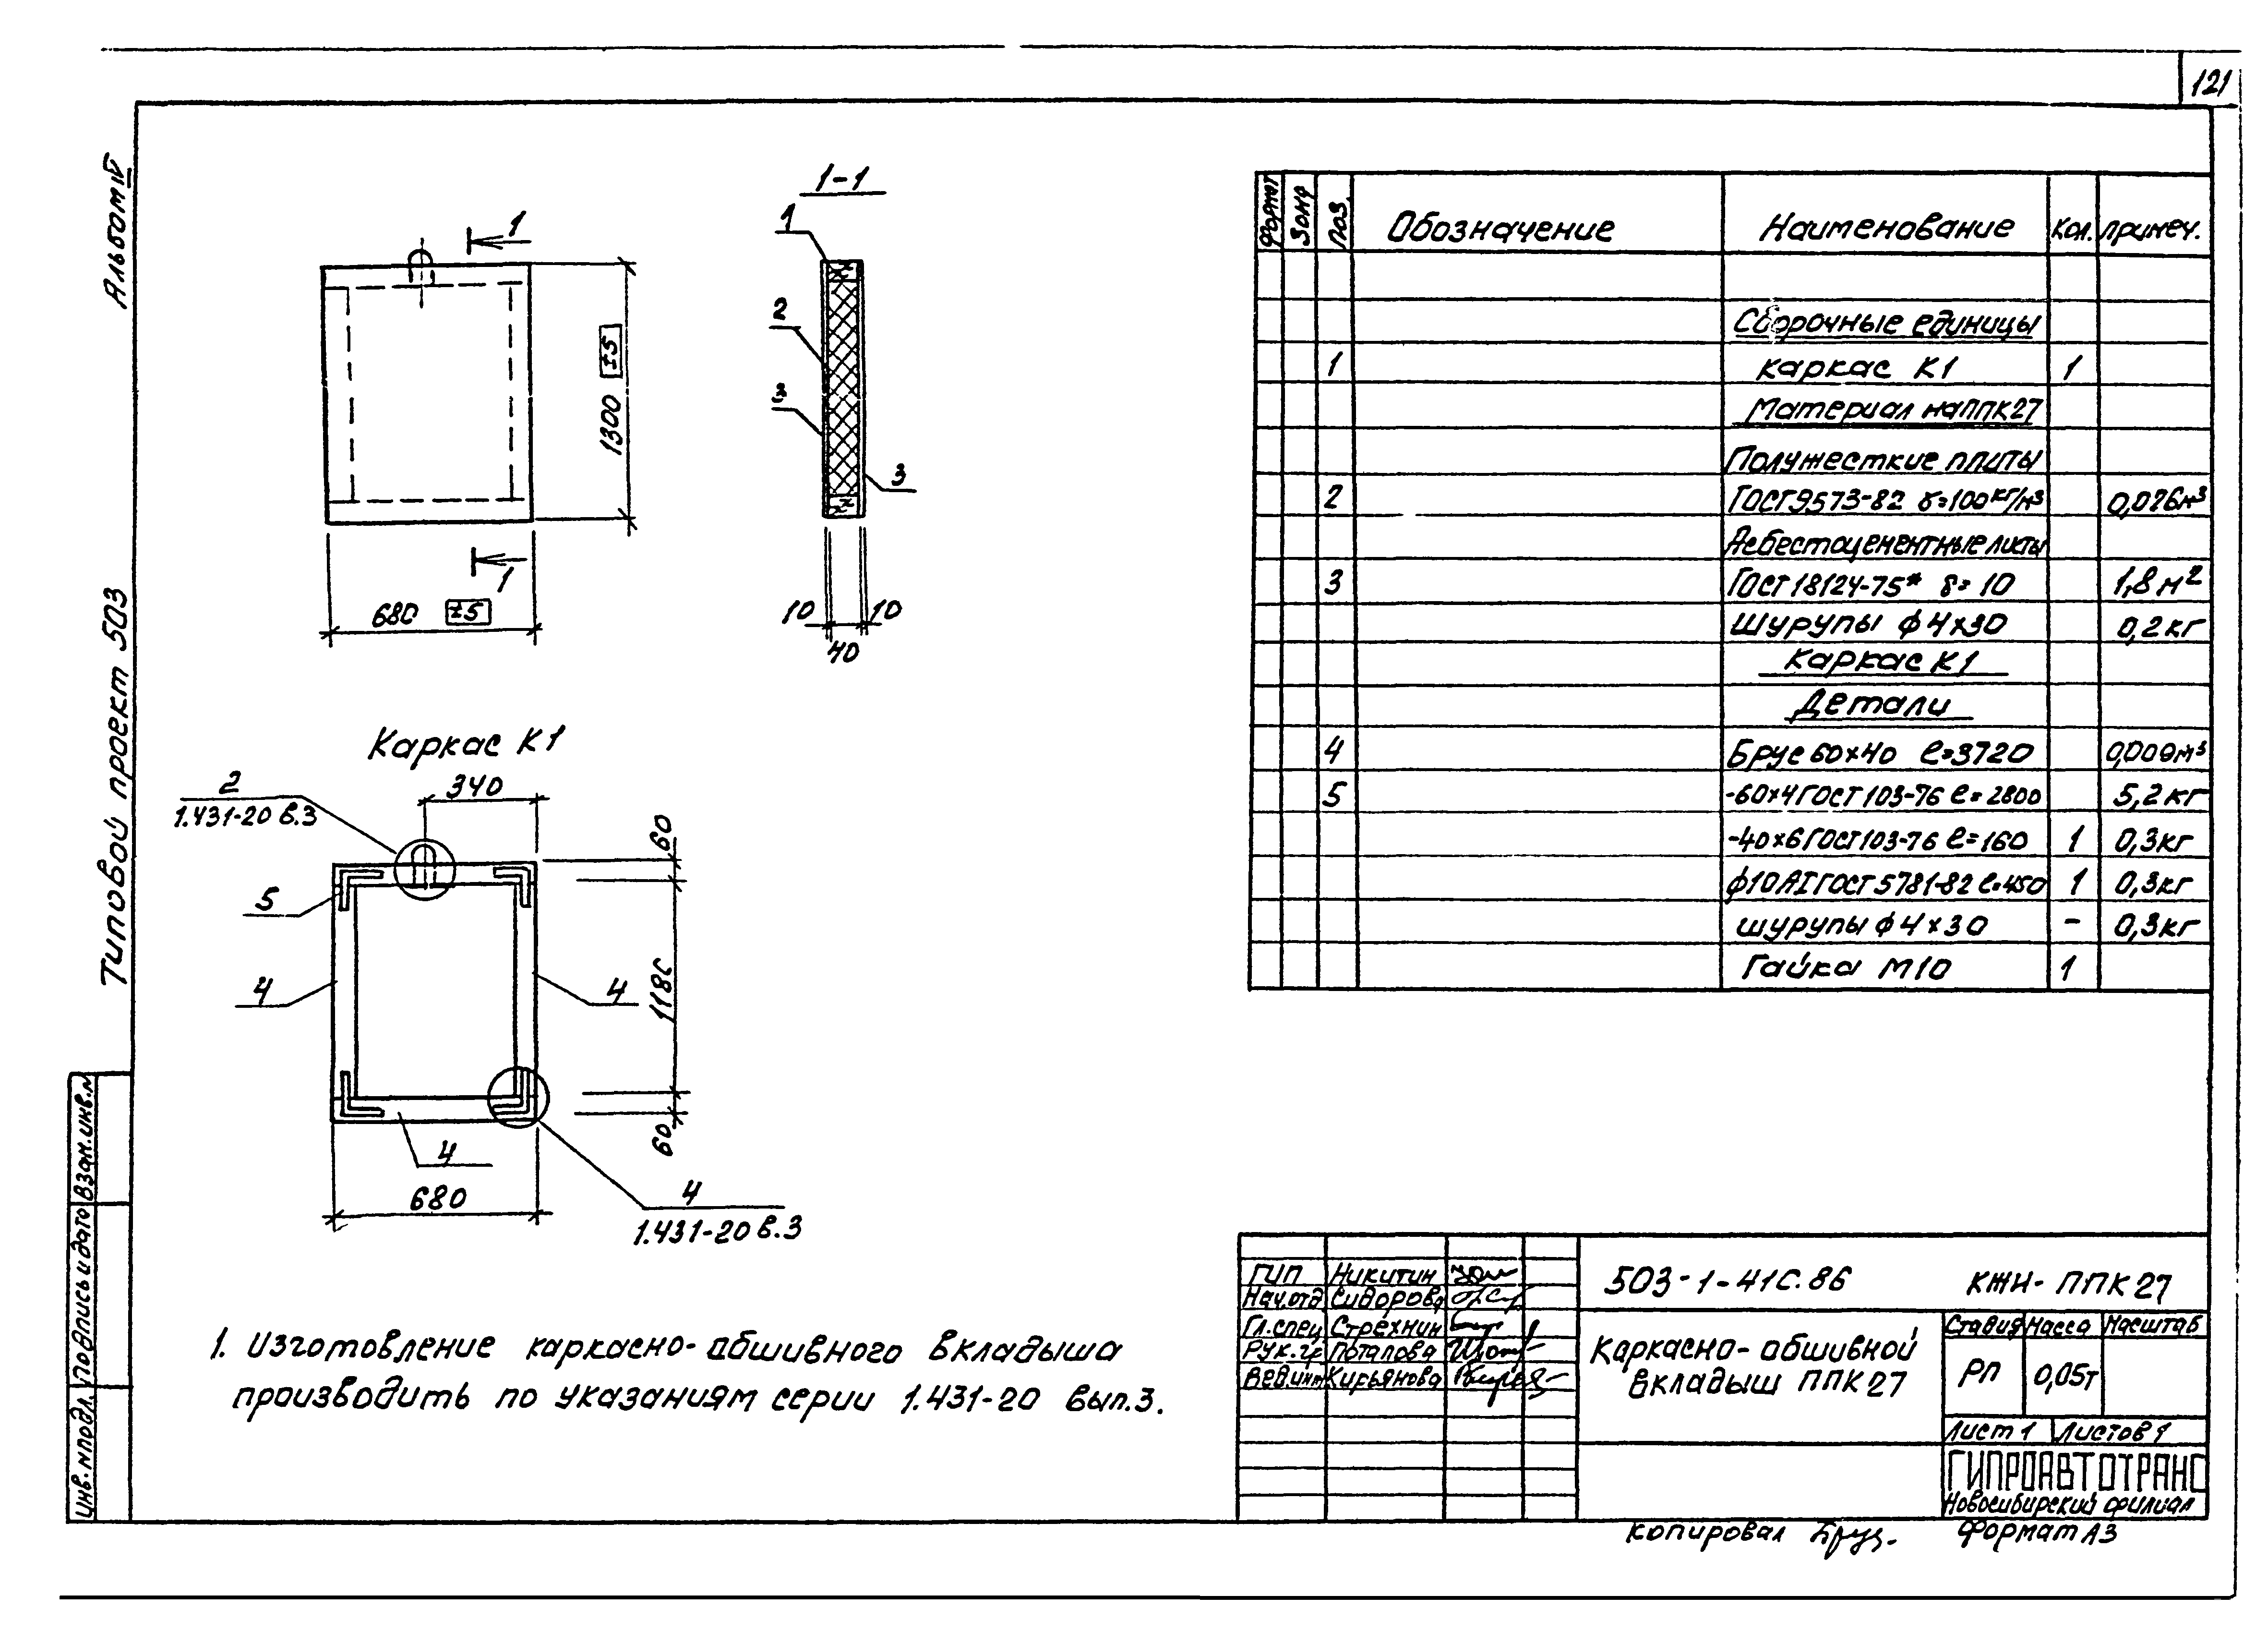 121
Альбом IV
Типовой проект 503
1
1
1300 ±5
680 ±5
1-1
1
2
3
3
10 40 10
Каркас К1
2
1.431-20 в.3
340
60
5
4
4
1180
60
4
680
4
1.431-20 в.3
1. Изготовление каркасно-обшивного вкладыша
производить по указаниям серии 1.431-20 вып.3.
Формат Зона Поз. Обозначение Наименование Кол. Примеч.
Сборочные единицы
1 Каркас К1 1
Материал на ППК27
Полужесткие плиты
2 ГОСТ 9573-82 γ=100 кг/м3 0,026м3
Асбестоцементные листы
3 ГОСТ 18124-75* δ=10 1,8 м2
Шурупы ф 4×30 0,2 кг
Каркас К1
Детали
4 Брус 60×40 ℓ=3720 0,009м3
5 -60×4 ГОСТ 103-76 ℓ=2800 5,2 кг
-40×6 ГОСТ 103-76 ℓ=160 1 0,3кг
ф10 АI ГОСТ 5781-82 ℓ=450 1 0,3кг
шурупы ф 4×30 - 0,3кг
Гайка М10 1
ГИП Никитин
Нач.отд Сидорова
Гл.спец Стрехнин
Рук.гр Потапова
Вед.инж Кирьянова
503-1-41С.86 КЖИ-ППК27
Каркасно-обшивной
вкладыш ППК27
Стадия Масса Масштаб
РП 0,05т
Лист 1 Листов 1
ГИПРОАВТОТРАНС
Новосибирский филиал
Копировал
Формат А3
Взам.инв.№
Подпись и дата
Инв.№ подл.